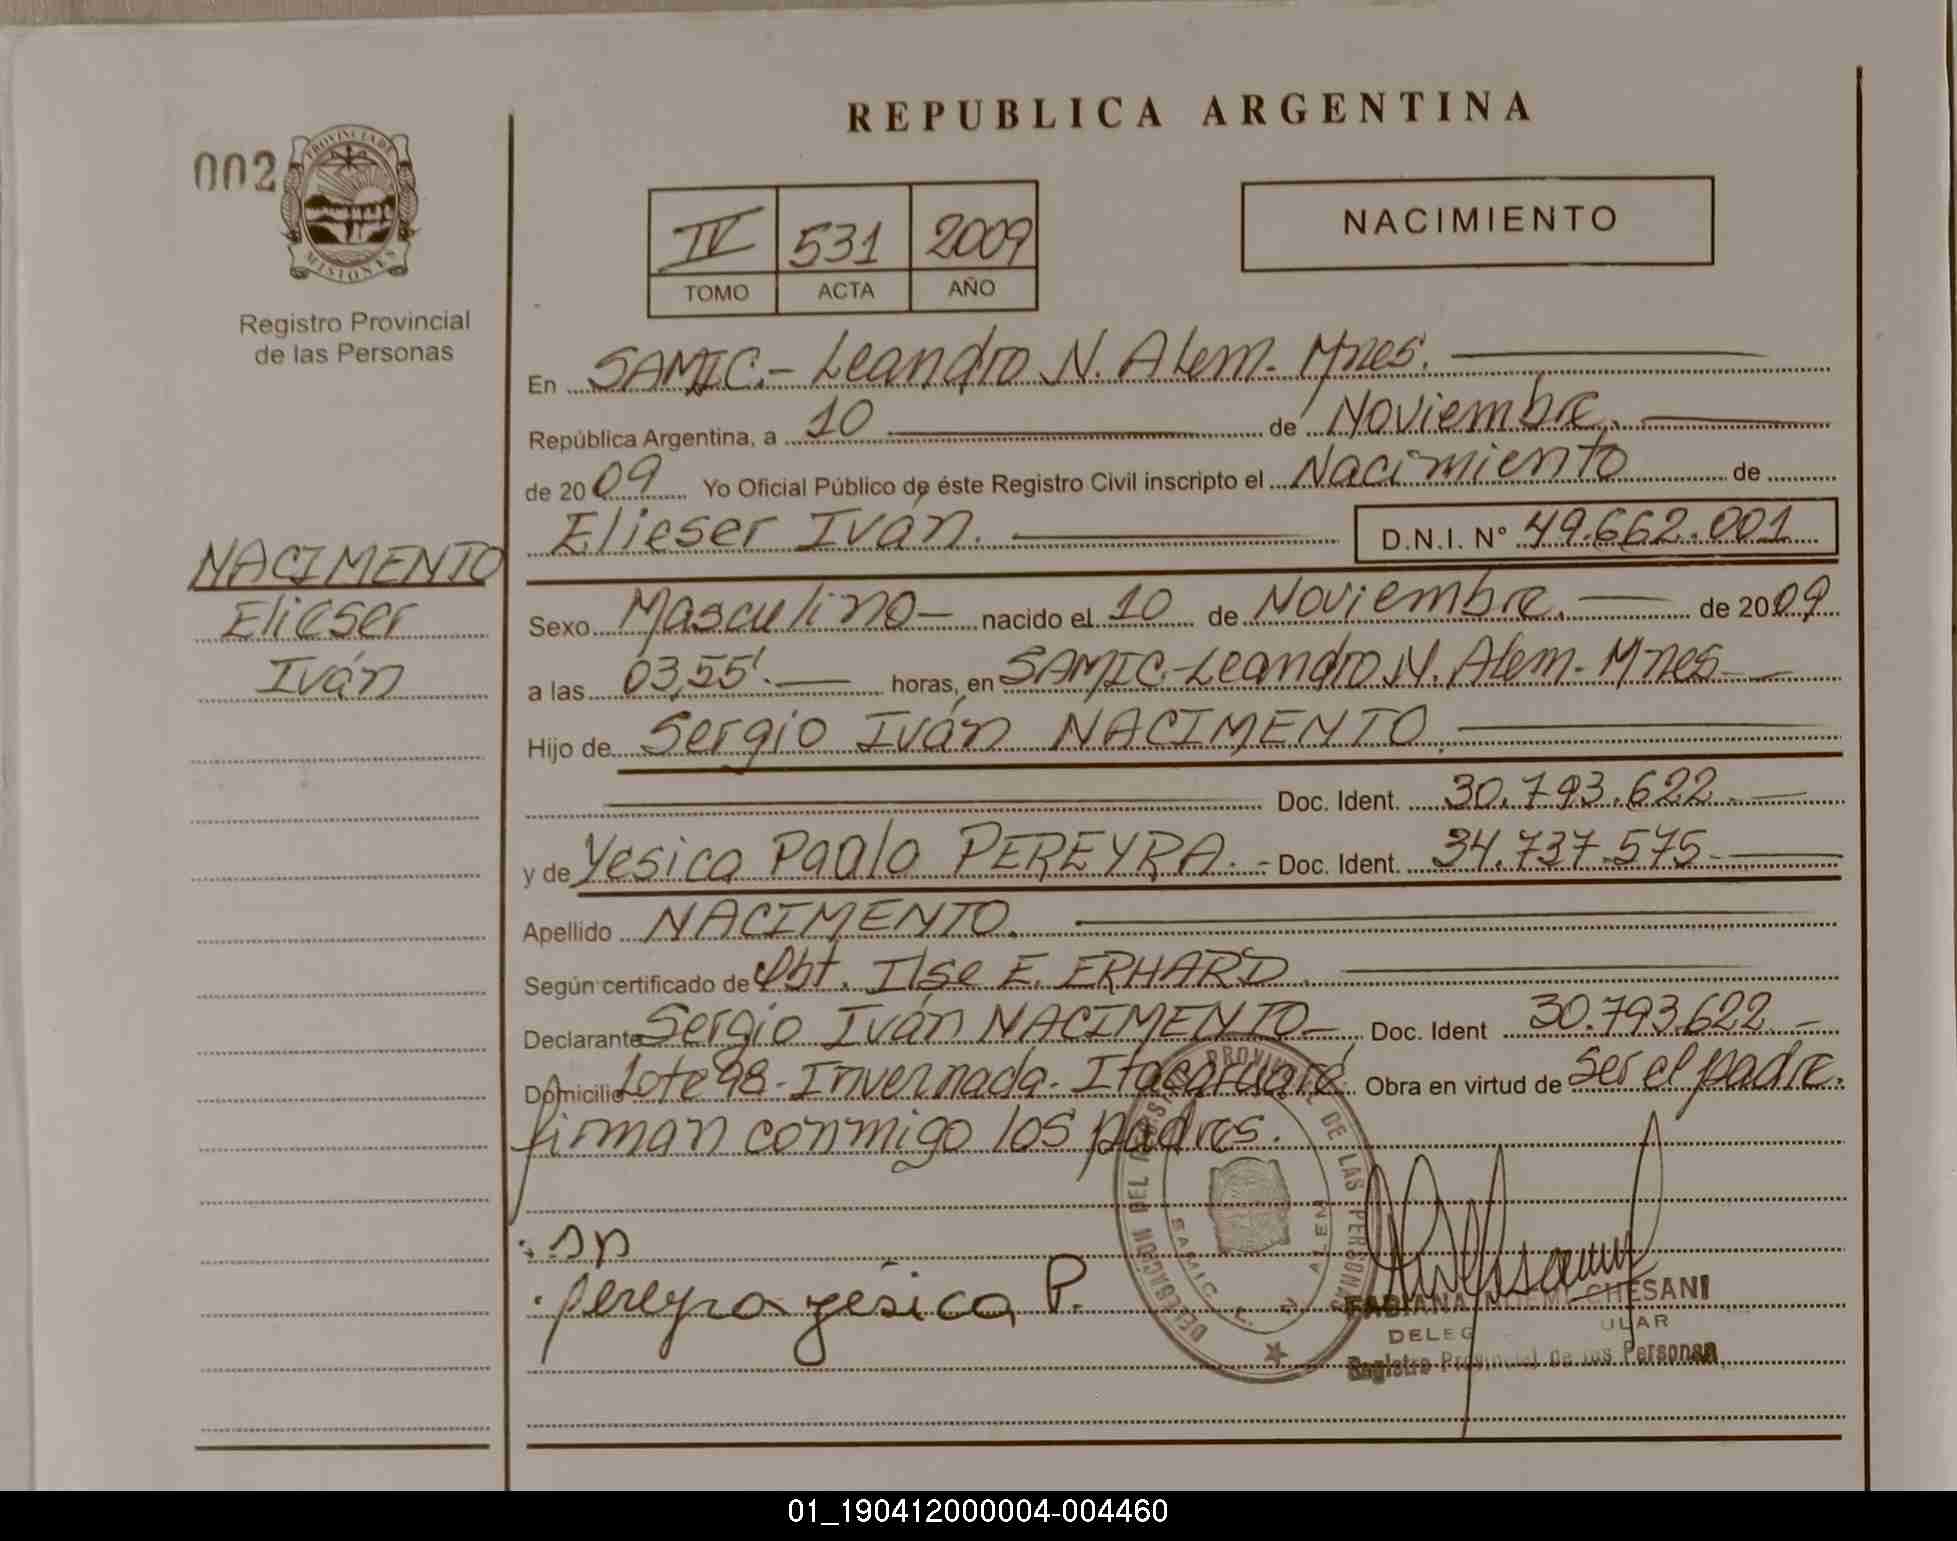 REPUBLICA ARGENTINA
002
PROVINCIA DE
MISIONES
Registro Provincial
de las Personas
IV 531 2009
TOMO ACTA AÑO
NACIMIENTO
En SAMIC.- Leandro N. Alem. Mnes.
República Argentina, a 10 de Noviembre.
de 2009 Yo Oficial Público de éste Registro Civil inscripto el Nacimiento de
Elieser Iván. D.N.I. Nº 49.662.001
NACIMENTO
Elieser
Iván
Sexo Masculino nacido el 10 de Noviembre. de 2009
a las 03,55'. horas, en SAMIC-Leandro N. Alem. Mnes
Hijo de Sergio Iván NACIMENTO.
Doc. Ident. 30.793.622
y de Yesica Paola PEREYRA. Doc. Ident. 34.737.575
Apellido NACIMENTO.
Según certificado de Obt. Ilse E. ERHARD.
Declarante Sergio Iván NACIMENTO Doc. Ident 30.793.622
Domicilio Lote 98 - Invernada - Itacaruaré. Obra en virtud de ser el padre.
firman conmigo los padres.
pereyra yésica P.
DELEGACION DEL REGISTRO PROVINCIAL DE LAS PERSONAS
SAMIC L. N. ALEM
FABIANA NOEMI CHESANI
Registro Provincial de las Personas
01_190412000004-004460